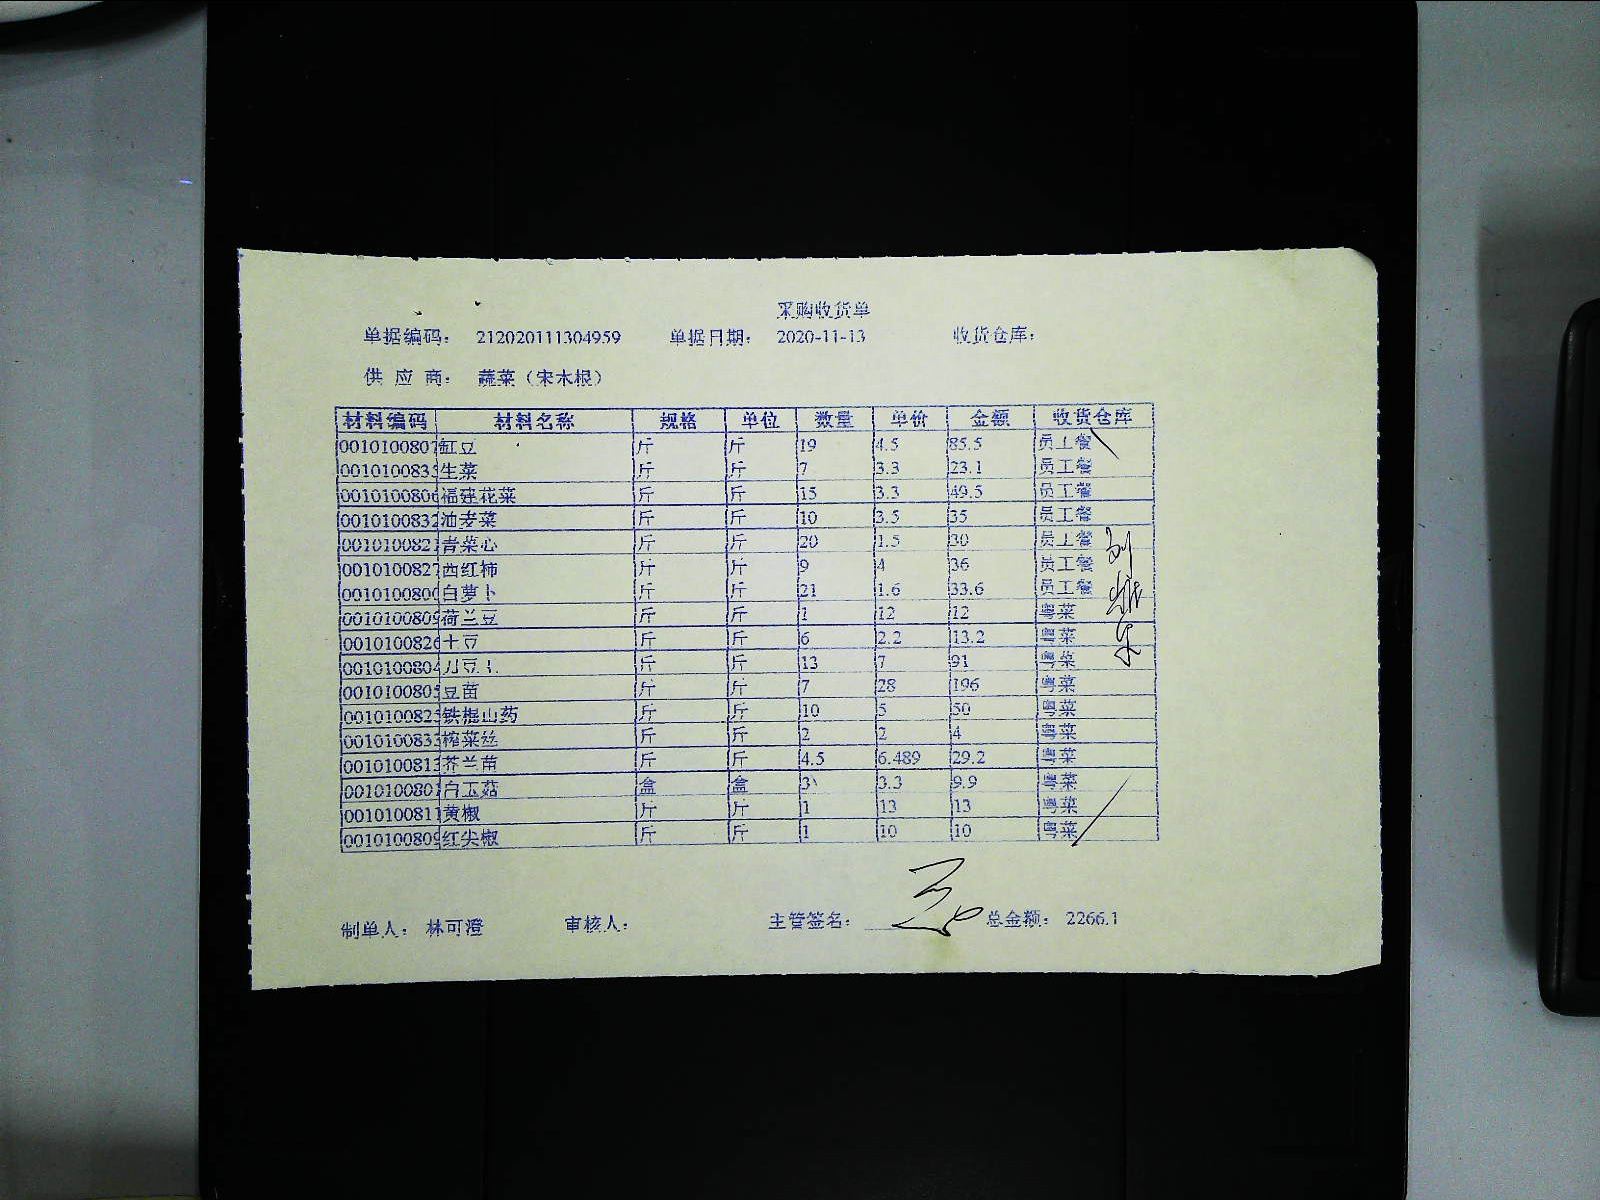 采购收货单
单据编码： 212020111304959 单据日期： 2020-11-13 收货仓库：
供 应 商： 蔬菜（宋木根）
材料编码 材料名称 规格 单位 数量 单价 金额 收货仓库
0010100807 缸豆 斤 斤 19 4.5 85.5 员工餐
001010083 生菜 斤 斤 7 3.3 23.1 员工餐
0010100806 福建花菜 斤 斤 15 3.3 49.5 员工餐
0010100832 油麦菜 斤 斤 10 3.5 35 员工餐
0010100821 青菜心 斤 斤 20 1.5 30 员工餐
0010100827 西红柿 斤 斤 9 4 36 员工餐
0010100800 白萝卜 斤 斤 21 1.6 33.6 员工餐
0010100809 荷兰豆 斤 斤 1 12 12 粤菜
0010100826 土豆 斤 斤 6 2.2 13.2 粤菜
0010100804 刀豆 斤 斤 13 7 91 粤菜
0010100805 豆苗 斤 斤 7 28 196 粤菜
0010100825 铁棍山药 斤 斤 10 5 50 粤菜
001010083 榨菜丝 斤 斤 2 2 4 粤菜
0010100813 芥兰苗 斤 斤 4.5 6.489 29.2 粤菜
0010100801 白玉菇 盒 盒 3 3.3 9.9 粤菜
0010100811 黄椒 斤 斤 1 13 13 粤菜
0010100809 红尖椒 斤 斤 1 10 10 粤菜
制单人： 林可澄 审核人： 主管签名： 总金额： 2266.1